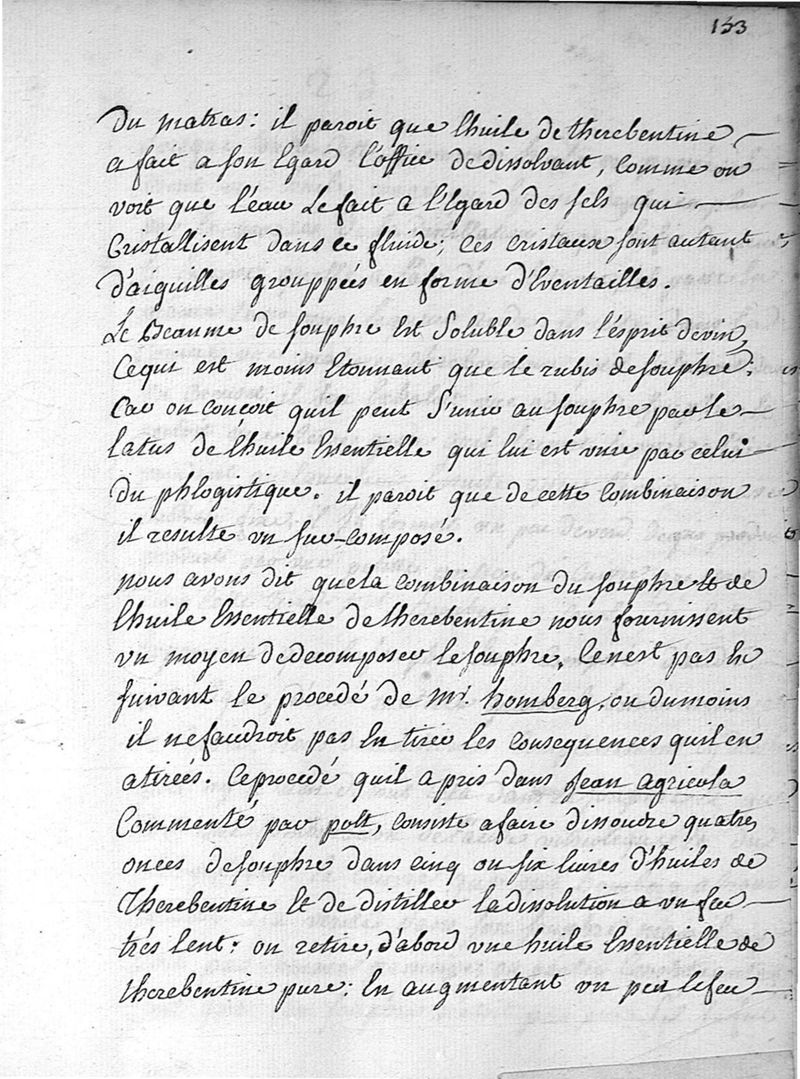 153
Du matras: il paroit que l'huile de therebentine
a fait a son Egard l'office de dissolvant, comme on
voit que l'eau le fait a l'Egard des sels qui
Cristallisent dans ce fluide; ces cristaux sont autant
d'aiguilles grouppées en forme d'Eventailles.
Le Beaume de souphre Est Soluble dans l'ésprit de vin,
Ce qui est moins Etonnant que le rubis de souphre;
Car on conçoit quil peut S'unir au souphre par le
latus de l'huile Essentielle qui lui est unie par celui
Du phlogistique. il paroit que de cette Combinaison
il resulte un sur-composé.
nous avons dit que la combinaison du souphre Et de
l'huile Essentielle de therebentine nous fournissent
un moyen de decomposer le souphre, Ce nest pas En
suivant le procedé de Mr. homberg, ou du moins
il ne faudroit pas En tirer les consequences quil en
a tireés. Ce procedé quil a pris dans Jean agricola
Commenté par polt, consiste a faire dissoudre quatre
onces de souphre dans cinq ou six livres d'huiles de
Therebentine Et de distiller la dissolution a un feu
trés lent: on retire, d'abord une huile Essentielle de
therebentine pure: En augmentant un peu le feu